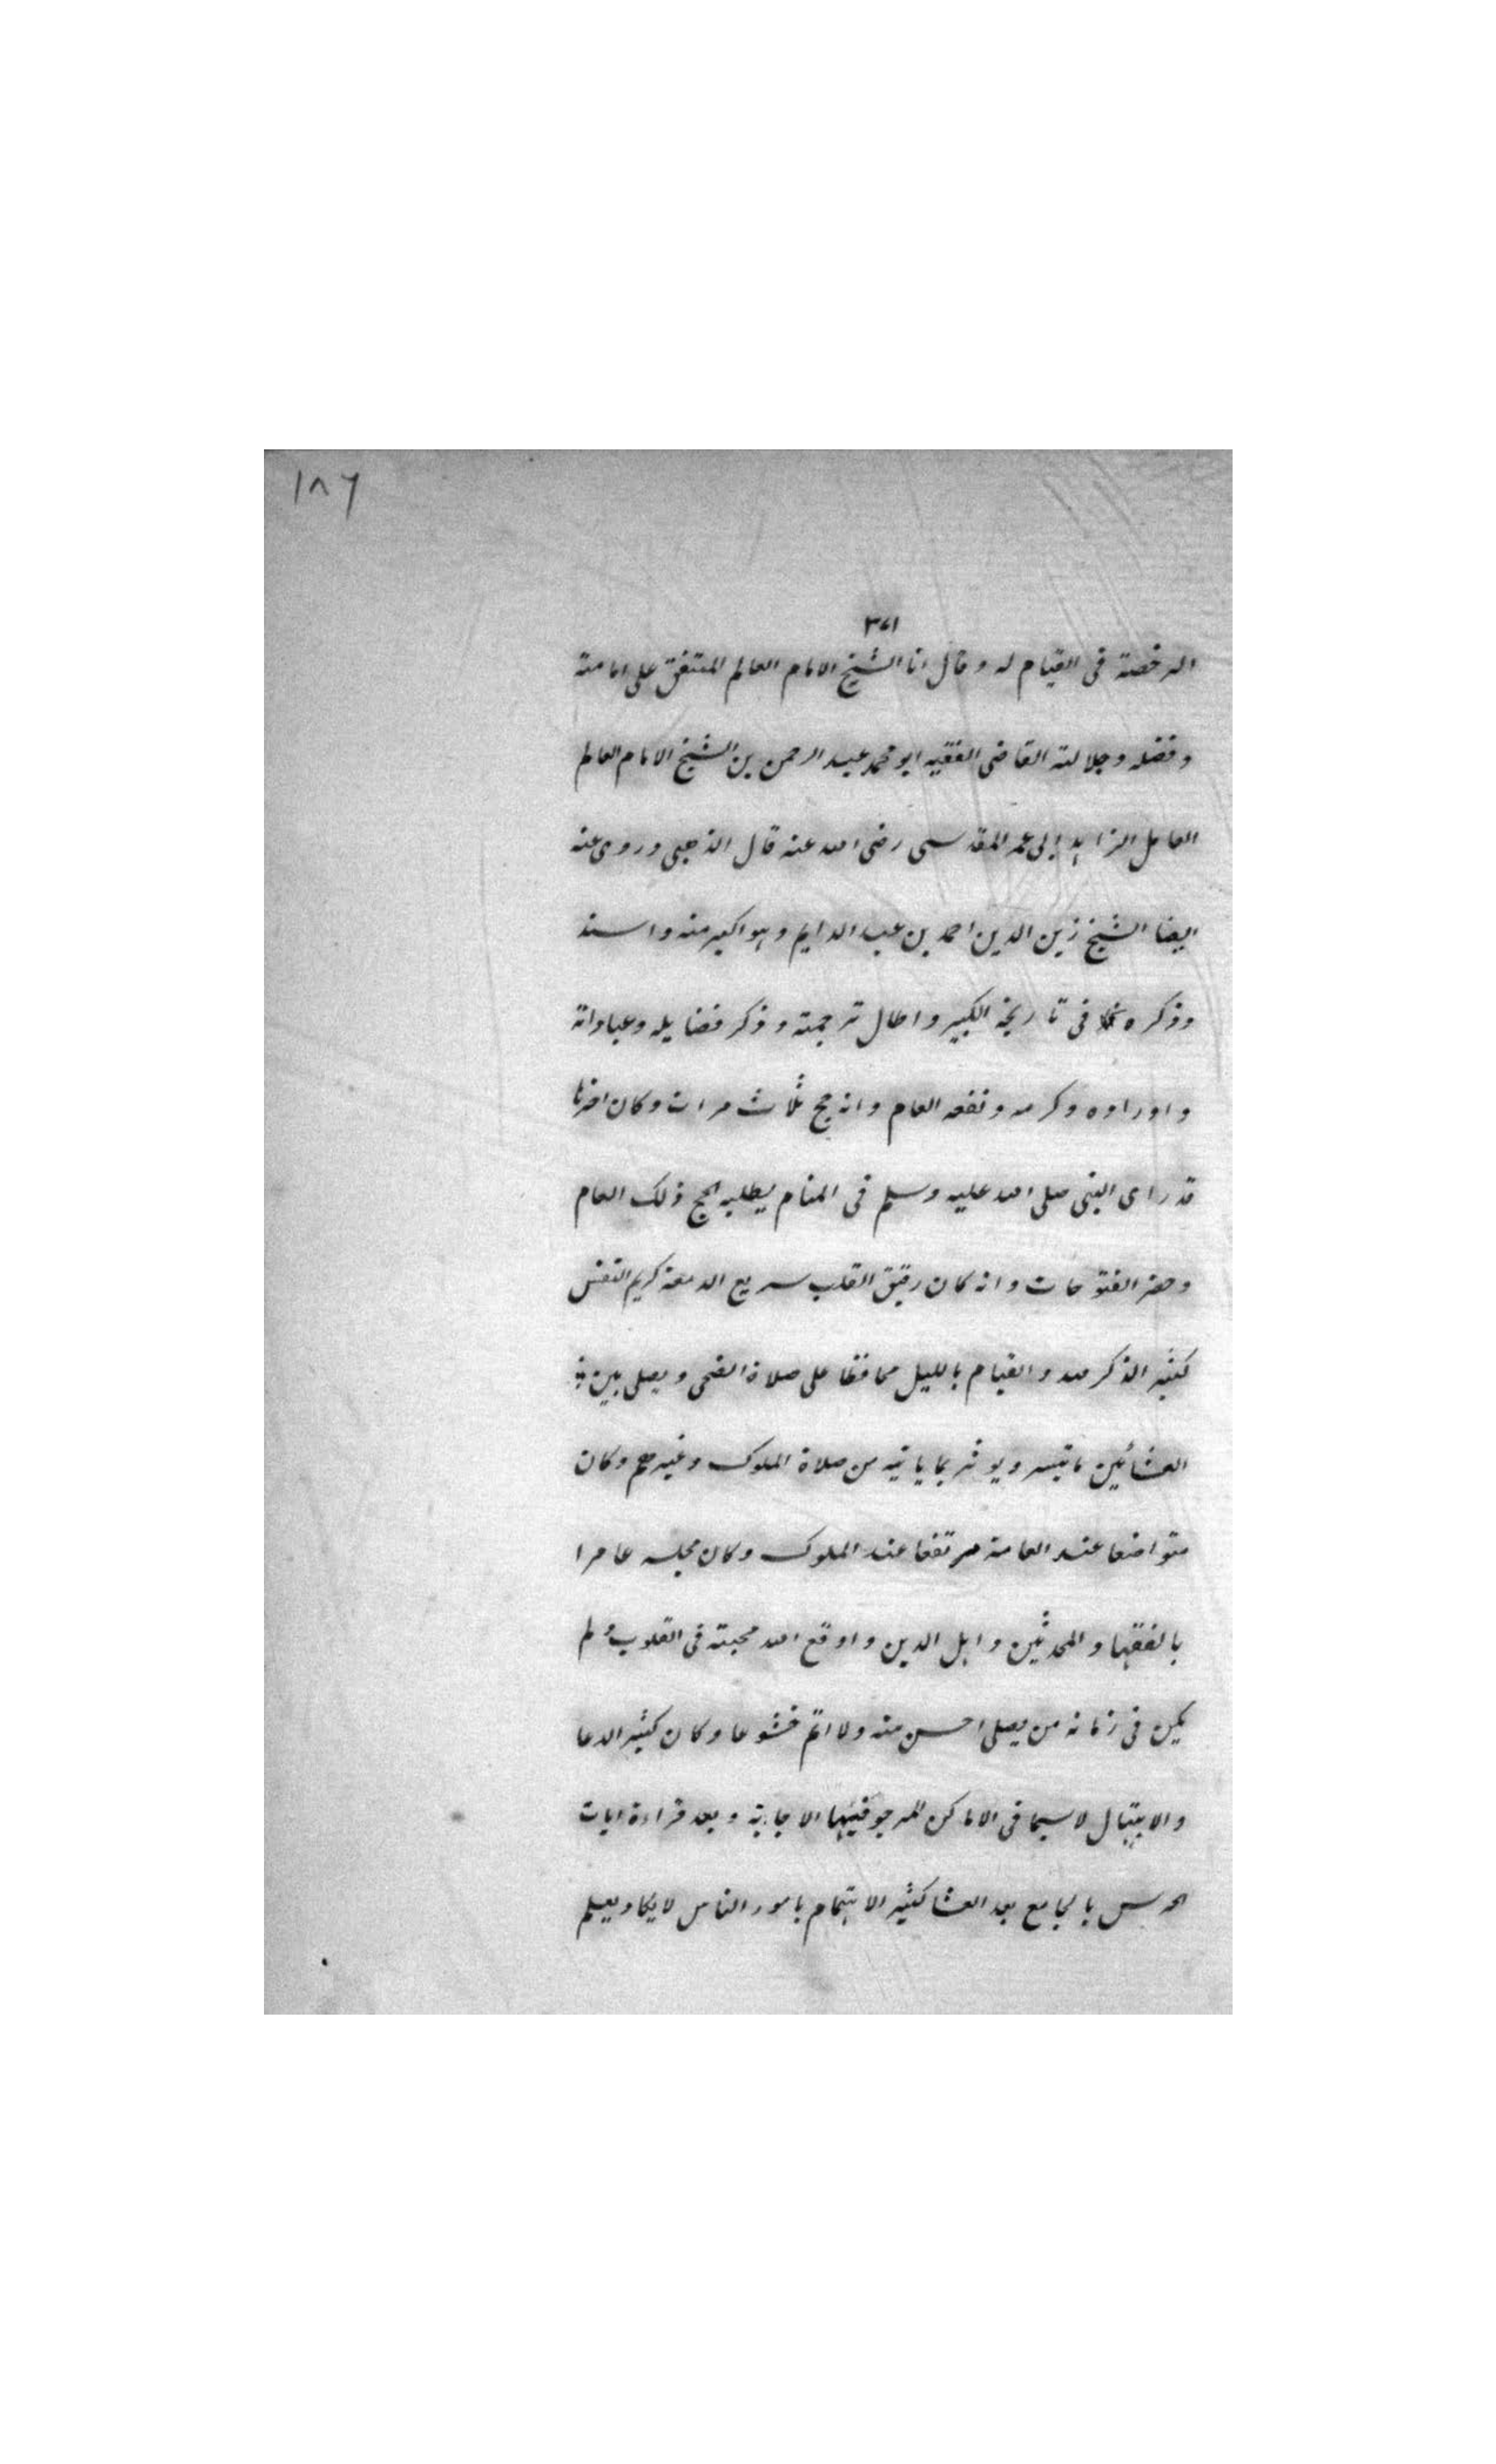 ١٨٦
٣٧١
الرخصة فى القيام له وقال انا الشيخ الامام العالم المتفق على امامته
وفضله وجلالته القاضى الفقيه ابو محمد عبد الرحمن بن الشيخ الامام العالم
العامل الزاهد ابى عمر المقدسى رضى الله عنه قال الذهبى وروى عنه
ايضا الشيخ زين الدين احمد بن عبد الدايم وهو اكبر منه واسند
وذكره فى تاريخه الكبير واطال ترجمته وذكر فضايله وعباداته
واوراده وكرمه ونفعه العام وانه حج ثلاث مرات وكان اخرها
قد راى النبى صلى الله عليه وسلم فى المنام يطلبه الحج ذلك العام
وحضر الفتوحات وانه كان رقيق القلب سريع الدمعة كريم النفس
كثير الذكر لله والقيام بالليل محافظا على صلاة الضحى ويصلى بين
العشائين ماتيسر ويوثر بما ياتيه من صلاة الملوك وغيرهم وكان
متواضعا عند العامة مرتفعا عند الملوك وكان مجلسه عامرا
بالفقها والمحدثين واهل الدين واوقع الله محبته فى القلوب ولم
يكن فى زمانه من يصلى احسن منه ولا اتم خشوعا وكان كثير الدعا
والابتهال لاسيما فى الاماكن المرجو فيها الاجابة وبعد قراءة ايات
الحرس بالجامع بعد العشا كثير الاهتمام بامور الناس لايكاد يعلم